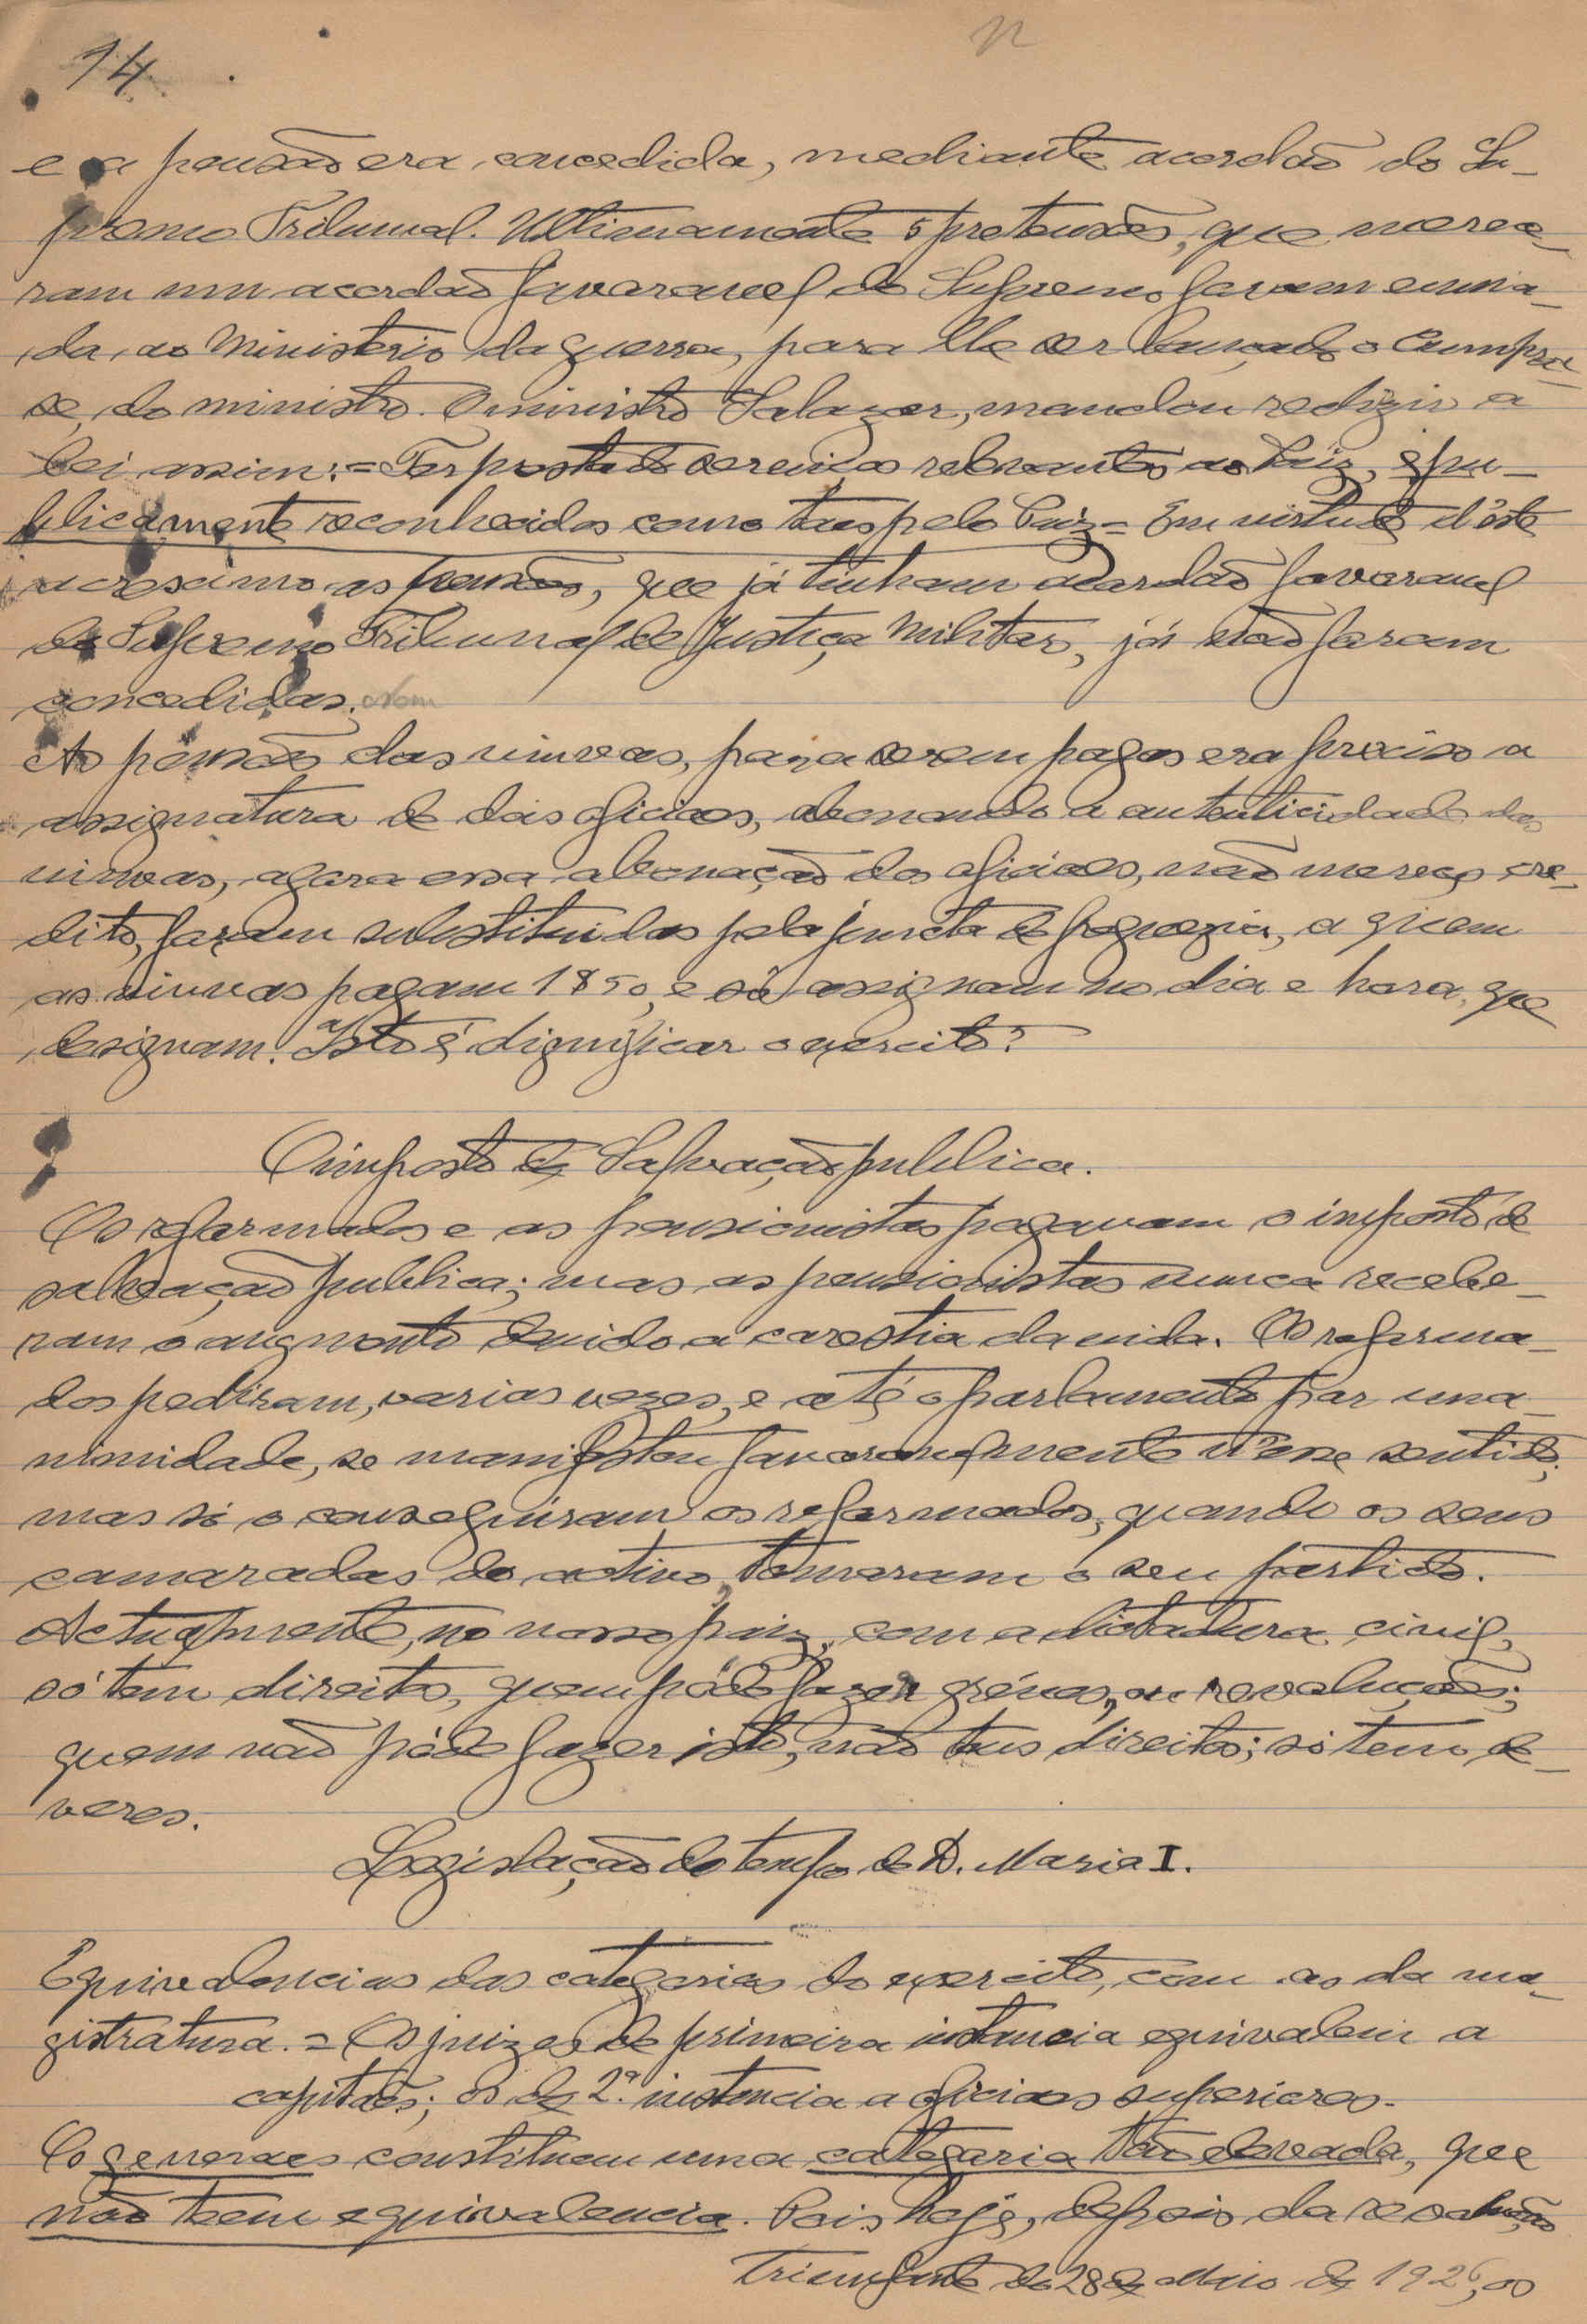 14
e a pensão era concedida, mediante acordão do Su-
premo Tribunal. Ultimamente 5 pretensões, que merece-
ram um acordão favoravel do Supremo foram envia-
da, ao Ministerio da guerra, para lhe ser lançado o Cumpra-
se, do ministro. O ministro Salazar, mandou redigir a
lei assim: = Ter prestado serviços relevantes ao Paiz, e pu-
blicamente reconhecidos como taes pelo Paiz = Em virtude d'este
acrescimo as pensões, que já tinham acordão favoravel
do Supremo Tribunal de Justiça Militar, já não foram
concedidas.
As pensões das viuvas, para serem pagas era preciso a
assignatura de dois oficiaes, abonando a autenticidade das
viuvas, agora essa abonação dos oficiaes, não merece cre-
dito, foram substituidos pela juncta de freguezia, a quem
as viuvas pagam 1$50, e só assignam no dia e hora, que
designam. Isto é dignificar o exercito?
O imposto de Salvação publica.
Os reformados e as pensionistas pagavam o imposto de
salvação publica; mas as pensionistas nunca recebe-
ram o augmento devido a carestia da vida. Os reforma-
dos pediram, varias vezes, e até o parlamento por una-
nimidade, se manifestou favoravelmente n'esse sentido;
mas só o conseguiram os reformados, quando os seus
camaradas do activo, tomaram o seu partido.
Actualmente, no nosso paiz, com a dictadura civil,
só tem direito, quem póde fazer gréves, ou revoluções;
quem não póde fazer isto, não tem direitos; só tem de-
veres.
Legislação do tempo de D. Maria I.
Equivalencias das categorias do exercito, com as da ma-
gistratura. = Os juizes de primeira instancia equivalem a
capitães; os de 2ª instancia a oficiaes superiores.
Os generaes constituem uma categoria tão elevada, que
não teem equivalencia. Pois hoje, depois da revolução
triunfante de 28 de Maio de 1926, os